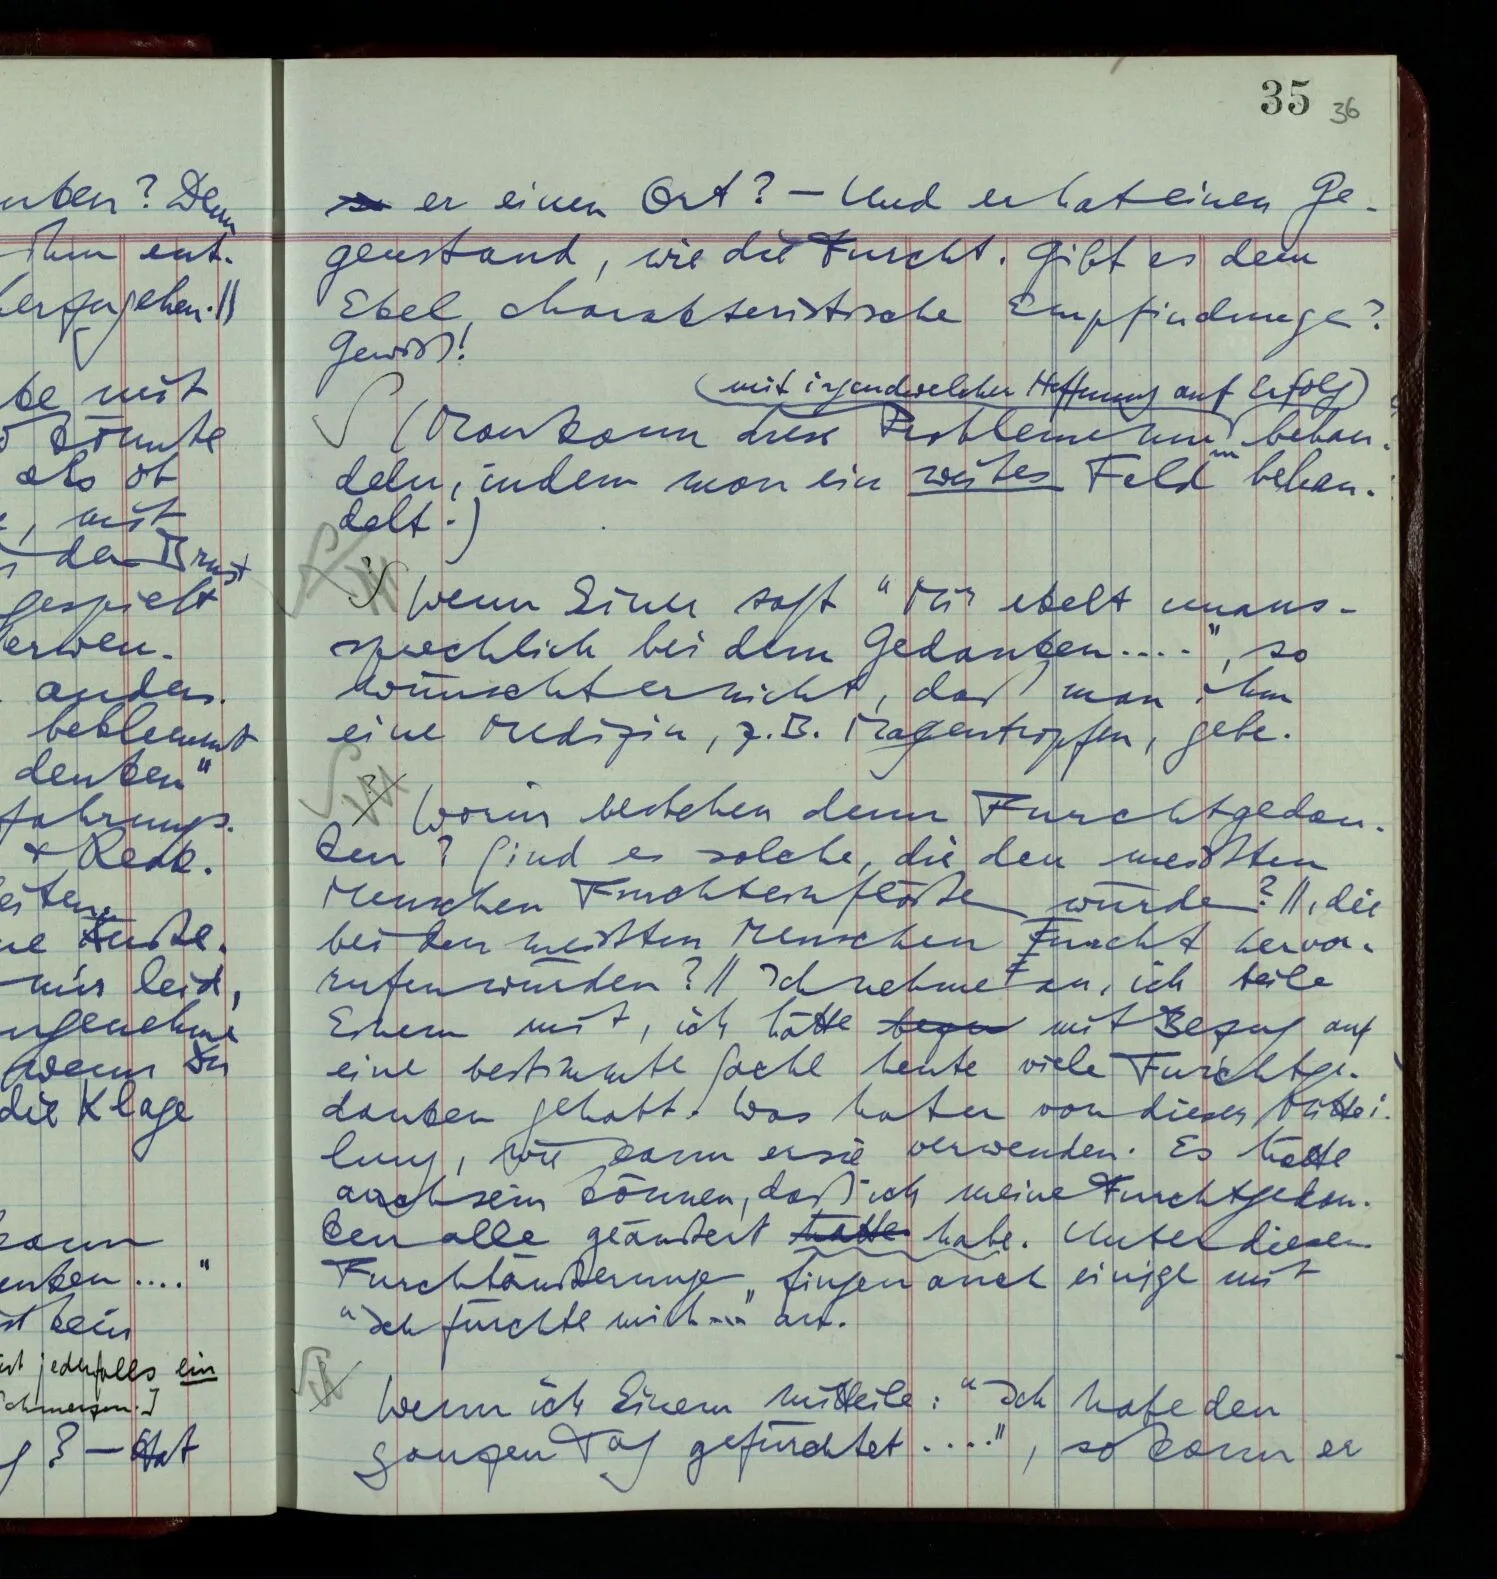 35 36
nken? Denn
ihm ent-
mit
könnte
als ob
, mit
der Brust
gespielt
anders.
beklemmt
denken"
fahrungs-
& Reak-
mir leid,
ngenehme
wenn Du
die Klage
kann
enken ...."
kein
ist jedenfalls ein
Schmerzen.]
? — Hat
er einen Ort? — Und er hat einen Ge-
genstand, wie die Furcht. Gibt es dem
Ekel charakteristische Empfindungen?
Gewiß!
(mit irgendwelcher Hoffnung auf Erfolg)
∫ (Man kann diese Probleme nur behan-
deln, indem man ein weites Feld behan-
delt.)
Wenn Einer sagt "Mir ekelt unaus-
sprechlich bei dem Gedanken....", so
wünscht er nicht, daß man ihm
eine Medizin, z.B. Magentropfen, gebe.
Worin bestehen denn Furchtgedan-
ken? Sind es solche, die den meisten
Menschen Furcht einflößen würden? //, die
bei den meisten Menschen Furcht hervor-
rufen würden? // Ich nehme an, ich teile
Einem mit, ich hätte mit Bezug auf
eine bestimmte Sache heute viele Furchtge-
danken gehabt. Was hat er von dieser Mittei-
lung, wie kann er sie verwenden. Es hätte
auch sein können, daß ich meine Furchtgedan-
ken alle geäußert hätte habe. Unter diesen
Furchtäußerungen fingen auch einige mit
"Ich fürchte mich..." an.
Wenn ich Einem mitteile: "Ich habe den
ganzen Tag gefürchtet ....", so kann er